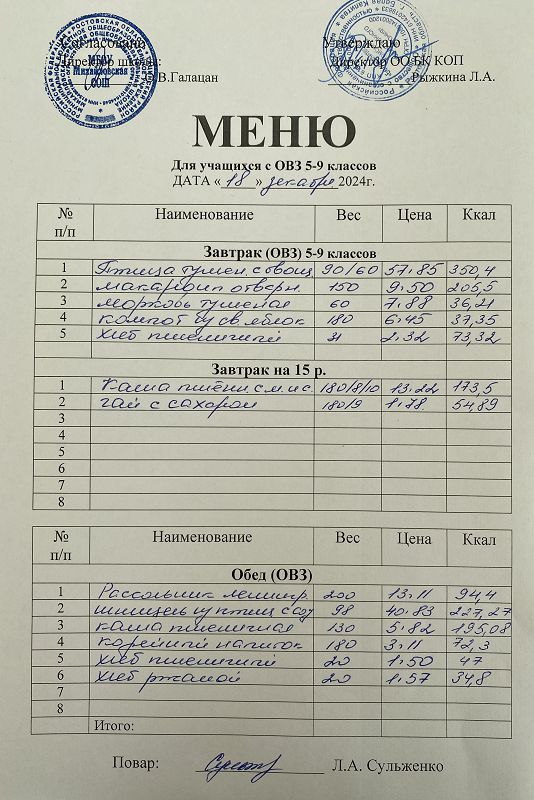 Согласовано
Утверждаю
Директор школы:
Директор ОО БК КОП
В.Галацан
Рыжкина Л.А.
Михайловская
СОШ
МЕНЮ
Для учащихся с ОВЗ 5-9 классов
ДАТА « 18 » декабря 2024г.
№ п/п Наименование Вес Цена Ккал
Завтрак (ОВЗ) 5-9 классов
1 Птица тушен. с овощ 90/60 57.85 350,4
2 макароны отварн. 150 9.50 206,5
3 морковь тушеная 60 7.88 36,21
4 компот из св. яблок 180 6.45 37,35
5 хлеб пшеничный 31 2.32 73,32
Завтрак на 15 р.
1 Каша пшён. с м. и с. 180/8/10 13.22 173,5
2 чай с сахаром 180/9 1.78 54,89
3
4
5
6
7
8
№ п/п Наименование Вес Цена Ккал
Обед (ОВЗ)
1 Рассольник ленингр. 200 13.11 94,4
2 шницель из птиц с соу 98 40.83 227,27
3 каша пшеничная 130 5.82 195,08
4 кофейный напиток 180 3.11 72,3
5 хлеб пшеничный 20 1.50 47
6 хлеб ржаной 20 1.57 34,8
7
8
Итого:
Повар: Л.А. Сульженко